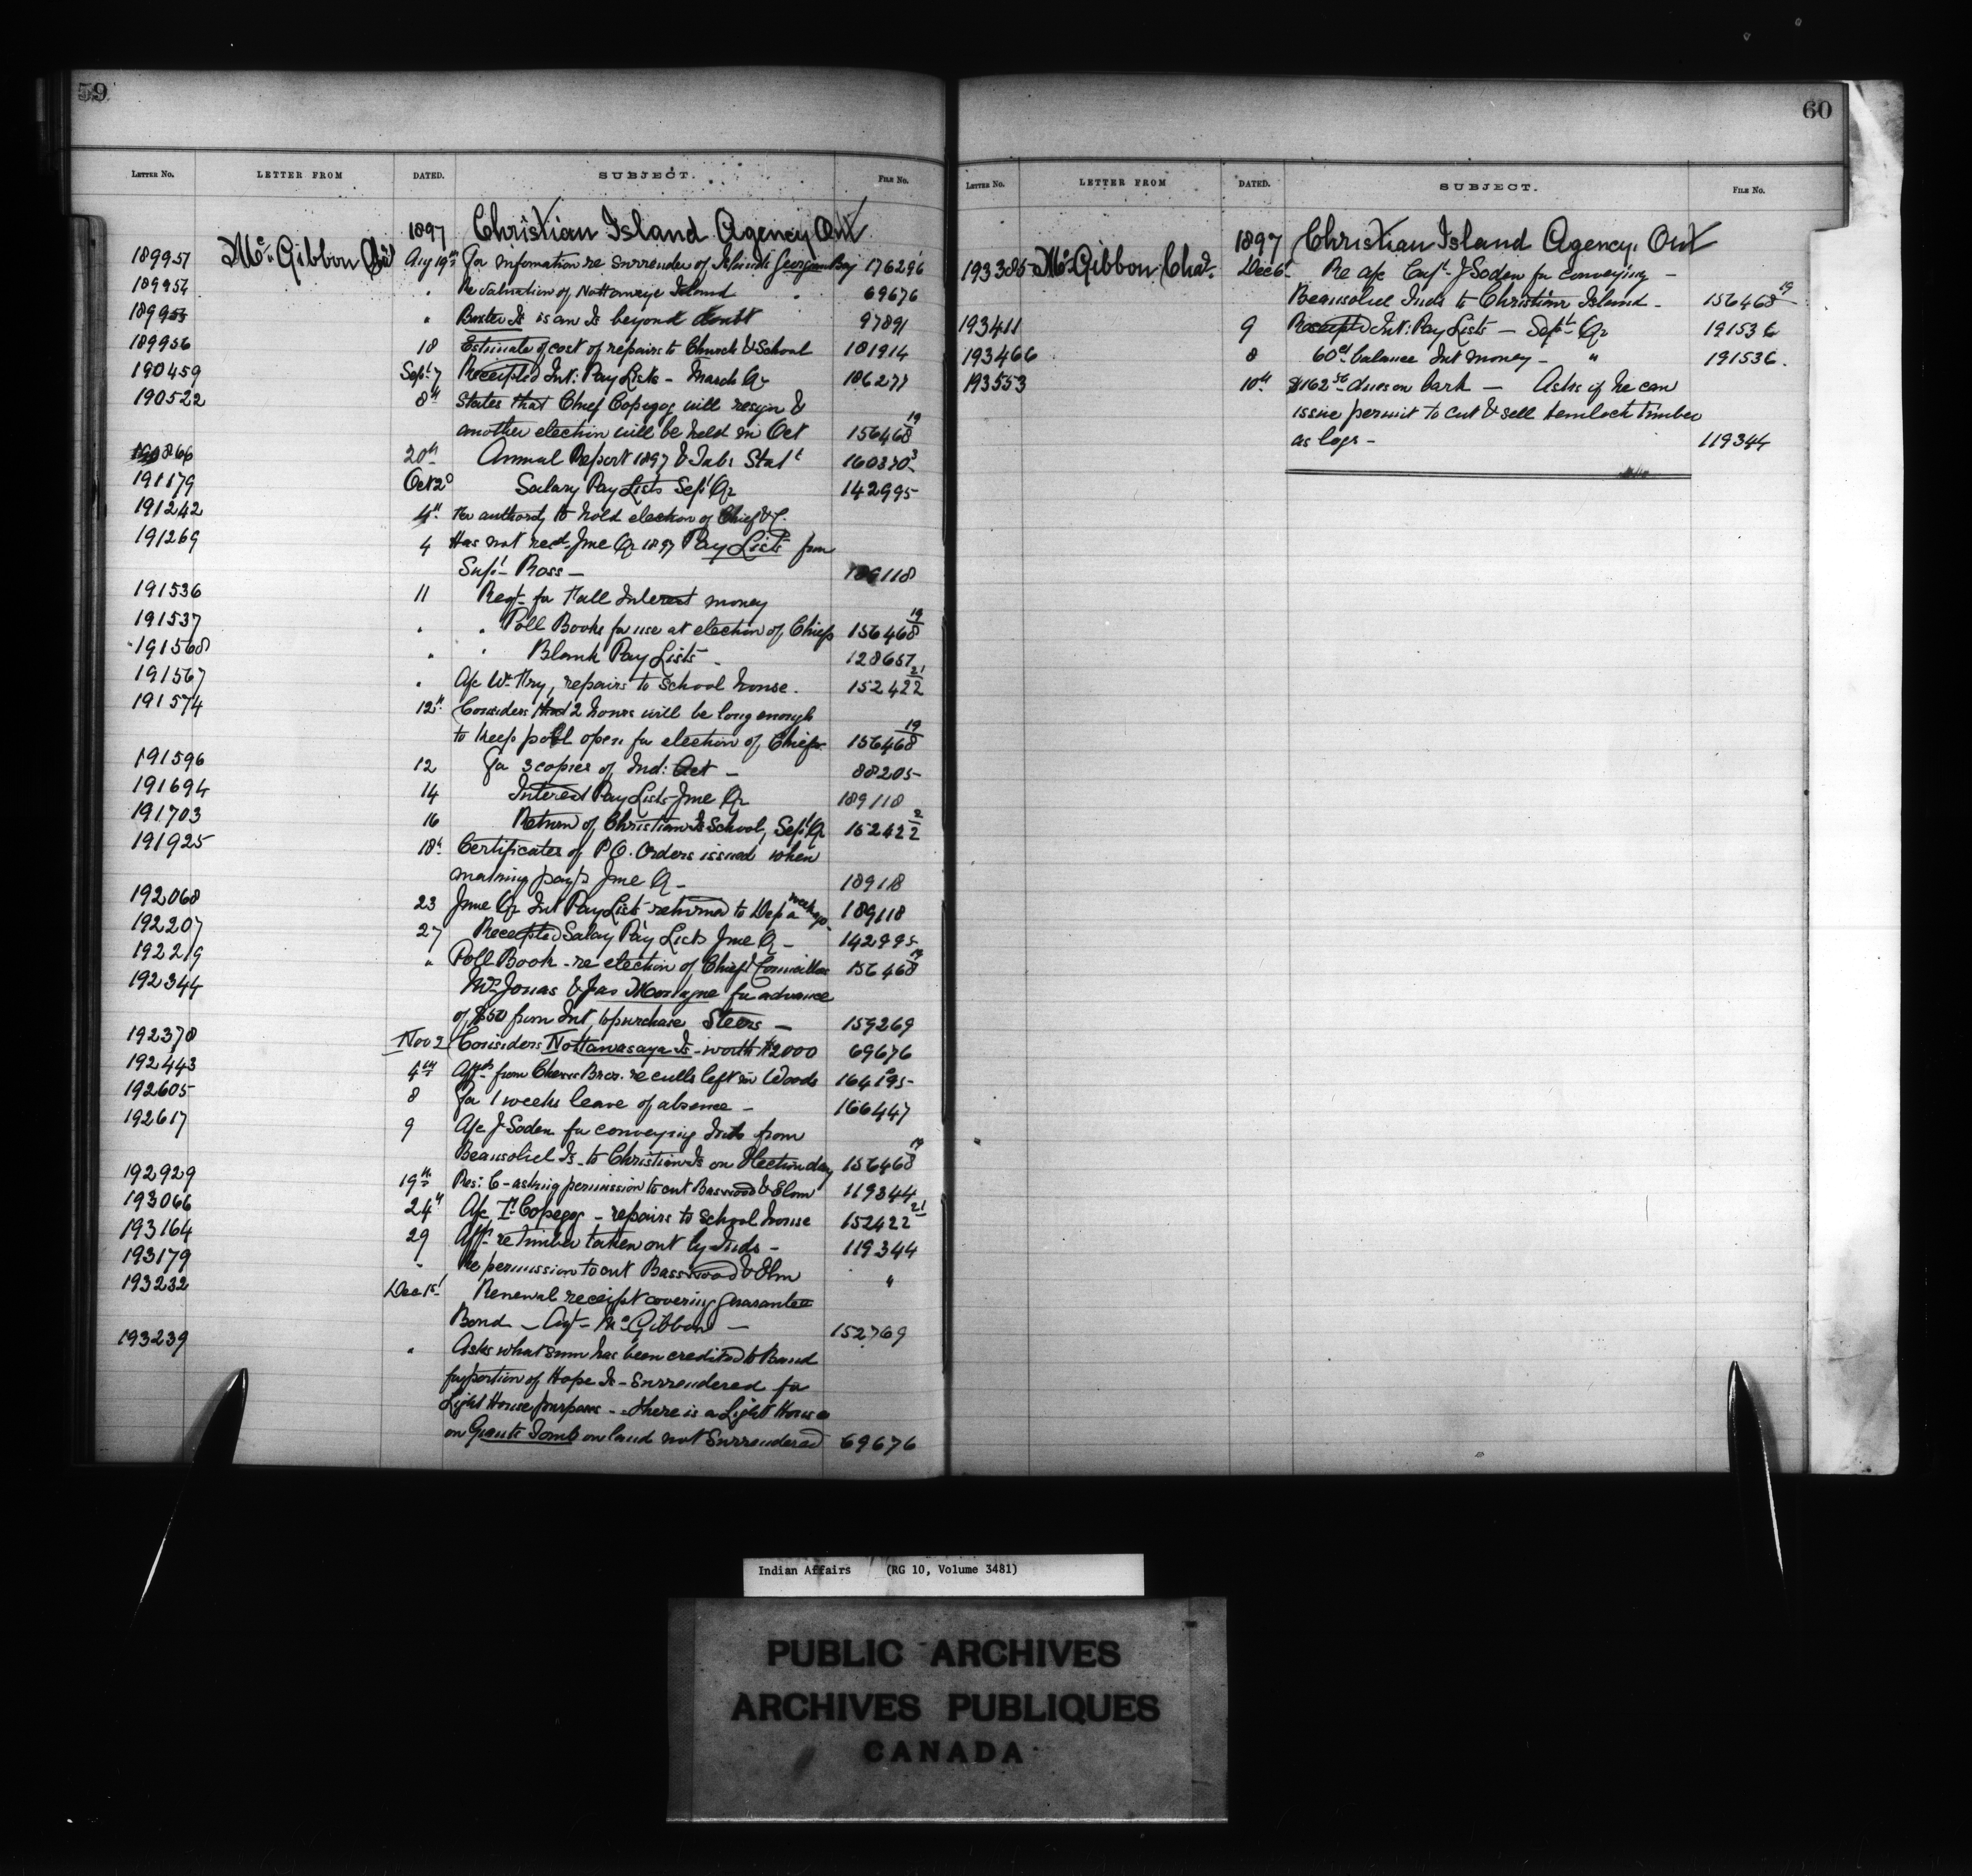 59
LETTER No. LETTER FROM DATED. SUBJECT. FILE No.
1897 Christian Island Agency Ont
189951 McGibbon Chas Aug 19th For information re surrender of Islands Georgian Bay 176296
189954 " Re valuation of Island 69676
189953 " Is is an Is beyond doubt 97891
189956 18 Estimate of cost of repairs to Church & School 181914
190459 Sept 7 Receipted Int: Pay Lists - March Qr 186277
190522 8th States that Chief Copegog will resign &
another election will be held in Oct 156468 19
190866 20th Annual Report 1897 & Tab: Statt 160370 3
191179 Oct 2d Salary Pay Lists Sept Qr 142995
191242 4th For authority to hold election of Chief & C.
191269 4 Has not recd June Qr 1897 Pay Lists from
Supt Ross - 189118
191536 11 Reqt for Fall Interest money
191537 " " Poll Books for use at election of Chiefs 156468 19
191568 " " Blank Pay Lists 128657
191567 " A/c Wm , repairs to school house. 152422 21
191574 12th Considers that 2 hours will be long enough
to keep poll open for election of Chiefs 156468 19
191596 12 For 3 copies of Ind: Act - 88205
191694 14 Interest Pay Lists June Qr 189118
191703 16 Return of Christian Is School, Sept Qr 152422 2
191925 18th Certificates of P.O. Orders issued when
making payts June Qr - 189118
192068 23 June Qr Int Pay Lists returned to Dep a week ago 189118
192207 27 Receipted Salary Pay Lists June Qr - 142995
192219 " Poll Book - re election of Chief & Councillors 156468 19
192344 Wm Jonas & Jas Montagne for advance
of $50 from Int, to purchase Steers - 159269
192378 Nov 2 Considers Nottawasaga Is - worth $2000 69676
192443 4th Appn from Chew Bros. re culls left in Woods 164195
192605 8 For 1 weeks leave of absence - 166447
192617 9 A/c J Soden for conveying Inds from
Beausoliel Is. to Christian Is on Election day 156468 19
192929 19th Res: C - asking permission to cut Basswood & Elm 119344
193066 24th A/c Copegog - repairs to school house 152422 21
193164 29 Appn re timber taken out by Inds - 119344
193179 " Re permission to cut Basswood & Elm "
193232 Dec 1st Renewal receipt covering guarantee
Bond - Agt - McGibbon - 152769
193239 " Asks what sum has been credited to Band
for portion of Hope Is - surrendered for
Light House purposes - there is a Light House
on Giants Tomb on land not surrendered 69676
60
LETTER No. LETTER FROM DATED. SUBJECT. FILE No.
1897 Christian Island Agency, Ont
193385 McGibbon Chas. Dec 6th Re a/c Capt J Soden for conveying -
Beausoliel Inds to Christian Island - 156468 19
193411 9 Receipted Int: Pay Lists - Sept Qr 191536
193466 8 60cts balance Int money - " 191536.
193553 10th $162 50 dues on bark - Asks if he can
issue permit to cut & sell hemlock timber
as logs - 119344
Indian Affairs (RG 10, Volume 3481)
PUBLIC ARCHIVES
ARCHIVES PUBLIQUES
CANADA